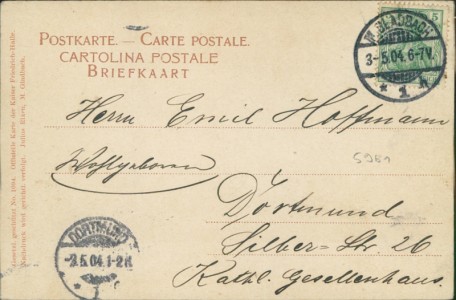 POSTKARTE. — CARTE POSTALE.
CARTOLINA POSTALE
BRIEFKAART
M. GLADBACH
3-5.04.6-7V.
* 1
5
Herrn Emil Hoffmann
Wohlgeboren
5981
Dortmund
Silber-Str 26
Kathl. Gesellenhaus.
DORTMUND
-3.5.04.1-2N.
Gesetzl. geschützt No. Offizielle Karte der Kaiser Friedrich-Halle.
Nachdruck wird gerichtl. verfolgt. Julius M. Gladbach.